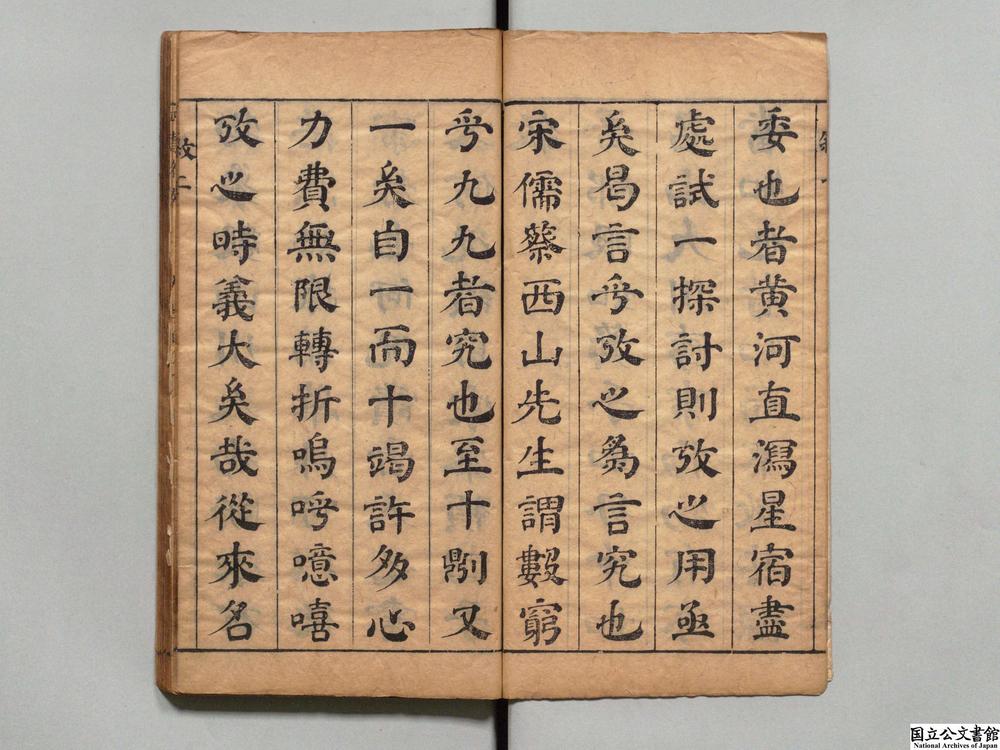 委也者黄河直瀉星宿盡
處試一探討則攷之用亟
矣曷言乎攷之為言究也
宋儒蔡西山先生謂數窮
乎九九者究也至十則又
一矣自一而十竭許多心
力費無限轉折嗚呼噫嘻
攷之時義大矣哉從來名
國立公文書館
National Archives of Japan